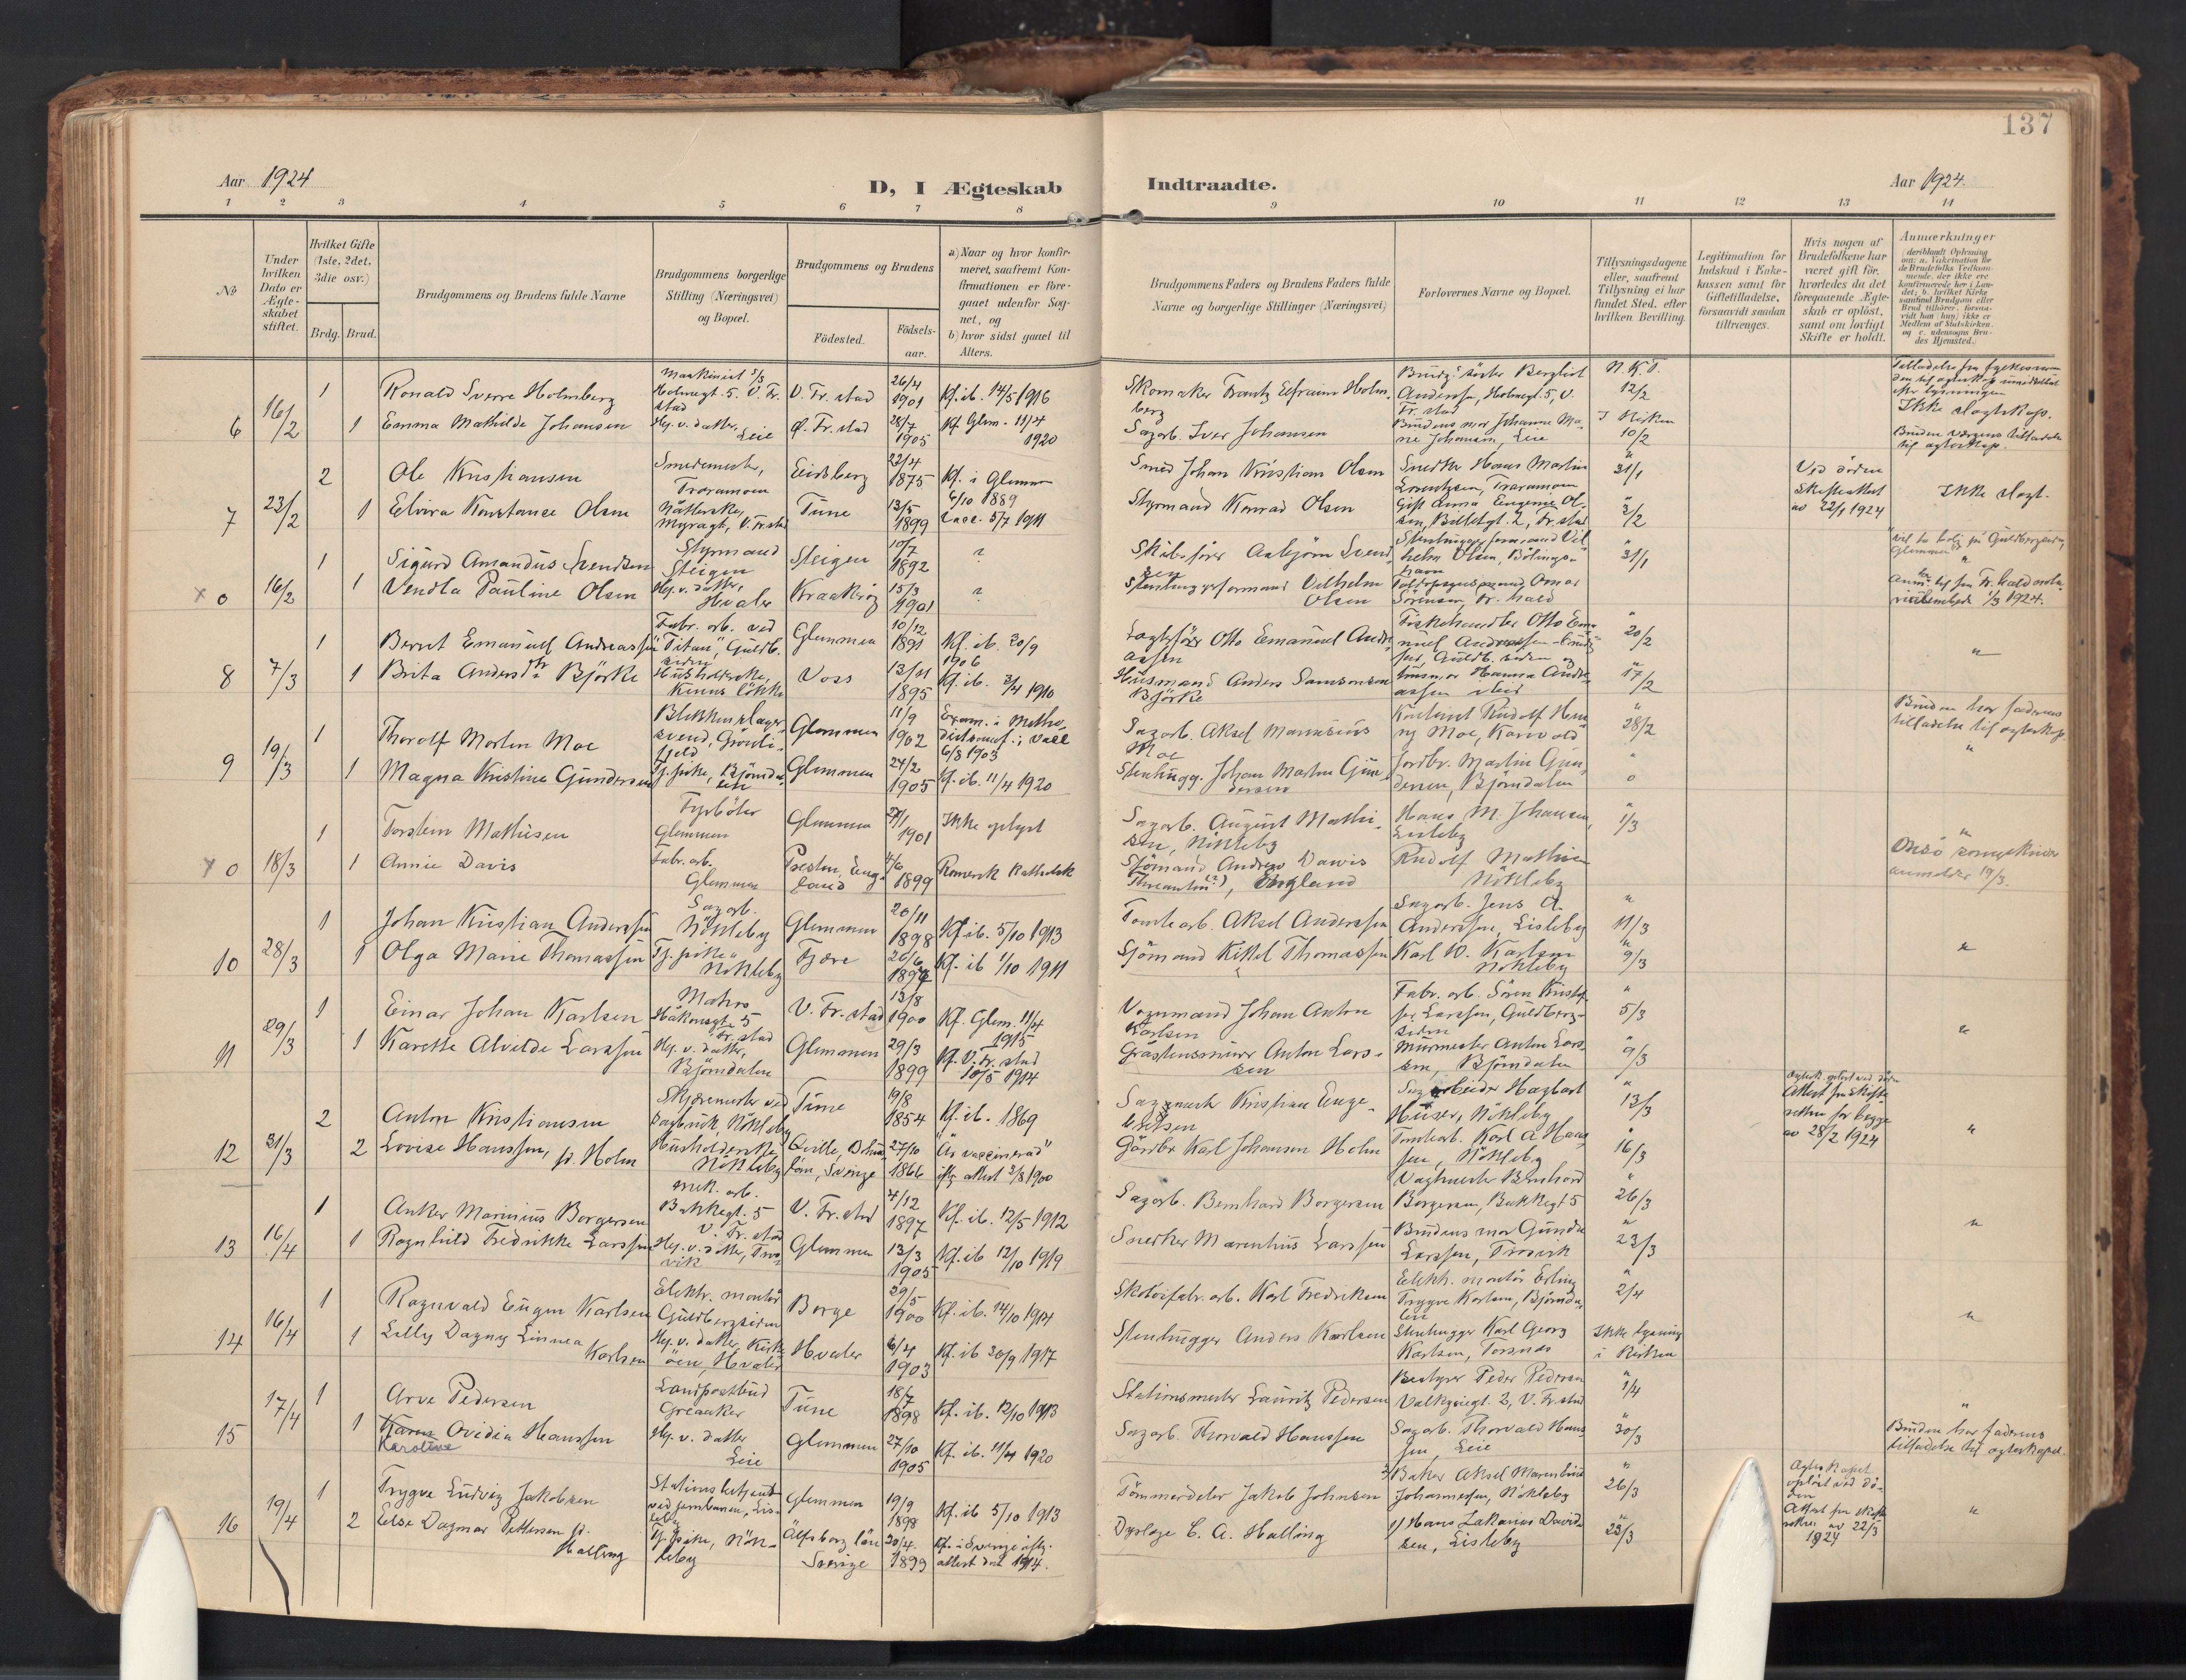 137
Aar 1924
D, I Ægteskab
Indtraadte.
Aar 1924.
1 2 3 4 5 6 7 8 9 10 11 12 13 14
No
Under hvilken Dato er Ægteskabet stiftet.
Hvilket Gifte (1ste, 2det, 3die osv.)
Brdg. Brud.
Brudgommens og Brudens fulde Navne
Brudgommens borgerlige Stilling (Næringsvei) og Bopæl.
Brudgommens og Brudens
Födested.
Födsels-aar.
a) Naar og hvor konfirmeret, saafremt Konfirmationen er foregaaet udenfor Sognet, og
b) hvor sidst gaaet til Alters.
Brudgommens Faders og Brudens Faders fulde Navne og borgerlige Stillinger (Næringsvei)
Forlovernes Navne og Bopæl.
Tillysningsdagene eller, saafremt Tillysning ei har fundet Sted, efter hvilken Bevilling.
Legitimation for Indskud i Enkekassen samt for Giftetilladelse, forsaavidt saadan tiltrænges.
Hvis nogen af Brudefolkene har været gift för, hvorledes da det foregaaende Ægteskab er oplöst, samt om lovligt Skifte er holdt.
Anmærkninger
6 16/2
1 Ronald Sverre Holmberg
Maskinist
Holmegt. 5. V. Fr. stad
V. Fr. stad
26/4 1901
Kf. ib. 14/5 1916
Skomaker Frantz Efraim Holmberg
Brudg's søster Bergliot Anderssen, Holmegt. 5, V. Fr. stad
N.K.T. 12/2
1 Emma Mathilde Johansen
Hj. v. datter, Leie
Ø. Fr. stad
28/7 1905
Kf. Glem. 11/4 1920
Sagarb. Iver Johansen
Brudens mor Johanne Marie Johansen, Leie
I Kirken 10/2
Ikke slegtskap.
7 23/2
2 Ole Kristiansen
Smedmester, Traramoen
Eidsberg
22/4 1875
Kf. i Glemmen 6/10 1889
Smed Johan Kristian Olsen
Snedker Hans Martin Lorentzen, Traramoen
" 31/1
Ved döden
Skifteattest av 22/1 1924
Ikke slegt.
1 Elvira Konstance Olsen
Myragt, V. Fr. stad
Tune
13/5 1899
vacc. 5/7 1911
Styrmand Konrad Olsen
Gift Anna Eugenie Olsen, Billetgt. 2, Fr. stad
" 3/2
x 0 16/2
1 Sigurd Amandus Svendsen
Styrmand Steigen
Steigen
10/7 1892
?
Skibsfører Asbjørn Svendsen
Stenhuggerformand Vilhelm Olsen, Bölingshavn
" 31/1
1 Vendla Pauline Olsen
Hj. v. datter, Hvaler
Kraakeröy
15/3 1901
?
Stenhuggerformand Vilhelm Olsen
Omar Sörensen, Fr. hald
8 7/3
1 Bernt Emanuel Andreassen
Fabr. arb. ved "Titan", Guldb. siden
Glemmen
10/12 1891
Kf. ib. 30/9 1906
Otto Emanuel Andreassen
Fiskehandler Otto Emanuel Andreassen
" 20/2
"
1 Brita Andersdtr Björke
Husholderske, Kinns lökke
Voss
13/11 1895
Kf. ib. 3/4 1910
Husmand Anders Samsonsen Björke
Hanna Andreassen sted
" 17/2
9 19/3
1 Thorolf Morten Moe
Glemmen
11/9 1902
6/3 1903
Sagarb. Aksel Marensius Moe
Rudolf Henny Moe, Karivold
" 28/2
Bruden har faderens tilladelse til egteskap.
"
1 Magna Kristine Gundersen
Tj. pike, Björndalen
Glemmen
24/2 1905
Kf. ib. 11/4 1920
Stenhugg. Johan Martin Gundersen
Jordbr. Martin Gundersen, Björndalen
" 0
x 0 18/3
1 Torstein Mathisen
Fyrböter Glemmen
Glemmen
27/1 1901
Ikke oplyst
Sagarb. August Mathisen, Nökleby
Hans M. Johansen, Lisleby
" 1/3
"
1 Annie Davis
Fabr. arb. Glemmen
Preston, England
4/6 1899
Romersk Katholsk
Sjömand Andrew Davis (?), England
Rudolf Mathisen Nökleby
Onsö
anmelder 19/3.
10 28/3
1 Johan Kristian Anderssen
Sagarb. Nökleby
Glemmen
20/11 1898
Kf. ib. 5/10 1913
Tomtearb. Aksel Anderssen
Sagarb. Jens A. Anderssen, Lisleby
" 11/3
"
1 Olga Marie Thomassen
Tj. pike Nökleby
Fjære
26/6 1897
Kf. ib 1/10 1911
Sjömand Kittel Thomassen
Karl W. Karlsen Nökleby
" 9/3
11 29/3
1 Einar Johan Karlsen
Matros Håkonsgt. 5 Fr. stad
V. Fr. stad
13/8 1900
Kf. Glem. 11/4 1915
Vognmand Johan Anton Karlsen
Fabr. arb. Sören Kristoffer Larssen, Guldbergsiden
" 5/3
"
1 Karethe Alvilde Larssen
Hj. v. datter, Björndalen
Glemmen
29/3 1899
Kf. V. Fr. stad 10/5 1914
Gråstensmurer Anton Larssen
Murmester Anton Larssen, Björndalen
" 9/3
12 31/3
2 Anton Kristiansen
Skjæremester ved Sagbruk, Nökleby
Tune
19/8 1854
Kf. ib. 1869
Sagmester Kristian Engebretsen
Sagarbeider Hagbart Huser, Nökleby
" 13/3
Attest fra skifteretten for begge av 28/2 1924
"
2 Lovise Hanssen, f. Holm
Husholderske, Nökleby
Qville, Bohuslän, Sverige
27/10 1866
"Är vaccinerad" iflg. attest 3/8 1900
Gårdbr Karl Johansen Holm
Tomtearb. Karl A Hanssen, Nökleby
" 16/3
13 16/4
1 Anker Marinius Borgersen
mek. arb. Bakkegt. 5 V. Fr. stad
V. Fr. stad
4/12 1897
Kf. ib. 12/5 1912
Sagarb. Bernhard Borgersen
Vagtmester Bernhard Borgersen, Bakkegt 5
" 26/3
"
1 Ragnhild Fredrikke Larssen
Hj. v. datter, Trosvik
Glemmen
13/3 1905
Kf. ib 12/10 1919
Snekker Marenhius Larssen
Brudens mor Gunda Larssen, Trosvik
" 23/3
14 16/4
1 Ragnvald Eugen Karlsen
Elektr. montör Guldbergsiden
Borge
29/5 1900
Kf. ib. 14/10 1914
Skotöifabr. arb. Karl Fredriksen
Elektr. montör Erling Trygve Karlsen, Björndalen
" 2/4
"
1 Lilly Dagny Linnea Karlsen
Hj. v. datter, Kirköen, Hvaler
Hvaler
6/4 1903
Kf. ib 30/9 1917
Stenhugger Anders Karlsen
Stenhugger Karl Georg Karlsen, Torsnes
Ikke lysning i Kirken
15 17/4
1 Arve Pedersen
Landpostbud Greaaker
Tune
18/7 1898
Kf. ib. 12/10 1913
Stationsmester Lauritz Pedersen
Bestyrer Peder Pedersen Valkyriegt. 2, V. Fr. stad
" 1/4
"
1 Karen Ovidia Hanssen
Karoline
Hj. v. datter Leie
Glemmen
27/10 1905
Kf. ib. 11/4 1920
Sagarb. Thorvald Hanssen
Sagarb. Thorvald Hanssen Leie
" 30/3
Bruden har faderens tilladelse til egteskapet.
16 19/4
1 Trygve Ludvig Jakobsen
Stationsbetjent ved jernbanen, Lisleby
Glemmen
19/9 1898
Kf. ib 5/10 1913
Tömmerdeler Jakob Johnsen
Baker Aksel Marenhius Johannessen, Nökleby
" 26/3
Egteskapet oplöst ved döden
Attest fra skifteretten av 22/3 1924
"
2 Else Dagmar Pettersen f. Halling
Tj. pike, Nökleby
Älfsborg län Sverige
20/4. 1899
Kf. i Sverige iflg. attest dat 1914.
C. A. Halling
Hans Zakarius Davidsen, Lisleby
" 23/3